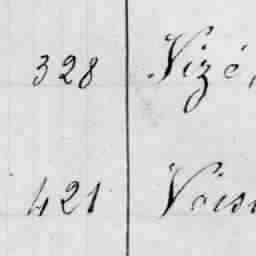 328 Vizé,
421 Voisi